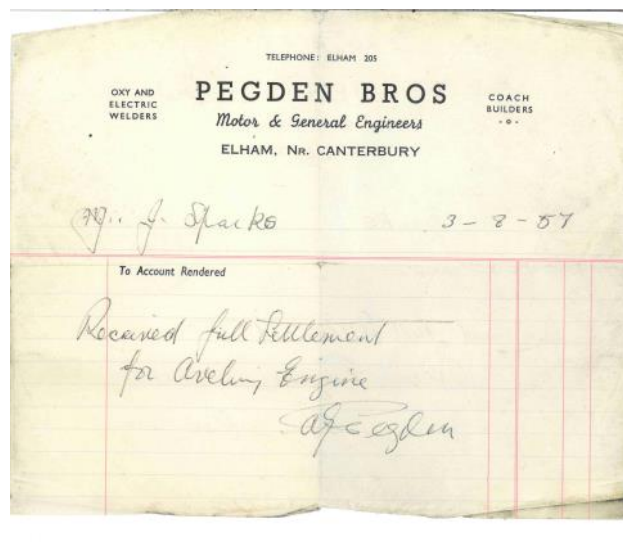 TELEPHONE: ELHAM 205
OXY AND
ELECTRIC
WELDERS
PEGDEN BROS
Motor & General Engineers
ELHAM, NR. CANTERBURY
COACH
BUILDERS
Mr. J. Sparks
3 - 8 - 57
To Account Rendered
Received full Settlement
for Aveling Engine
Pegden